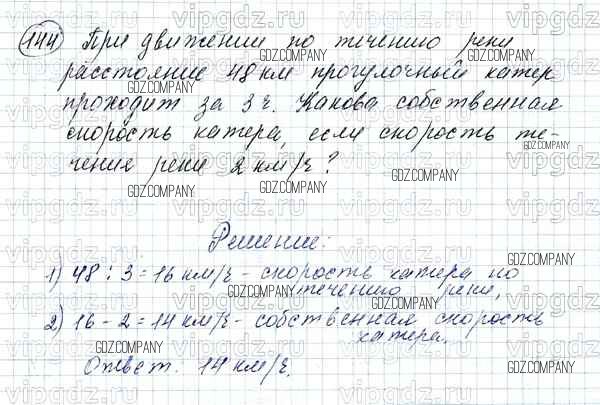 144 При движении по течению реки
расстояние 48 км прогулочный катер
проходит за 3 ч. Какова собственная
скорость катера, если скорость те-
чения реки 2 км/ч?
Решение:
1) 48 : 3 = 16 км/ч - скорость катера по
течению реки,
2) 16 - 2 = 14 км/ч - собственная скорость
катера.
Ответ. 14 км/ч.
vipgdz.ru
GDZ.COMPANY